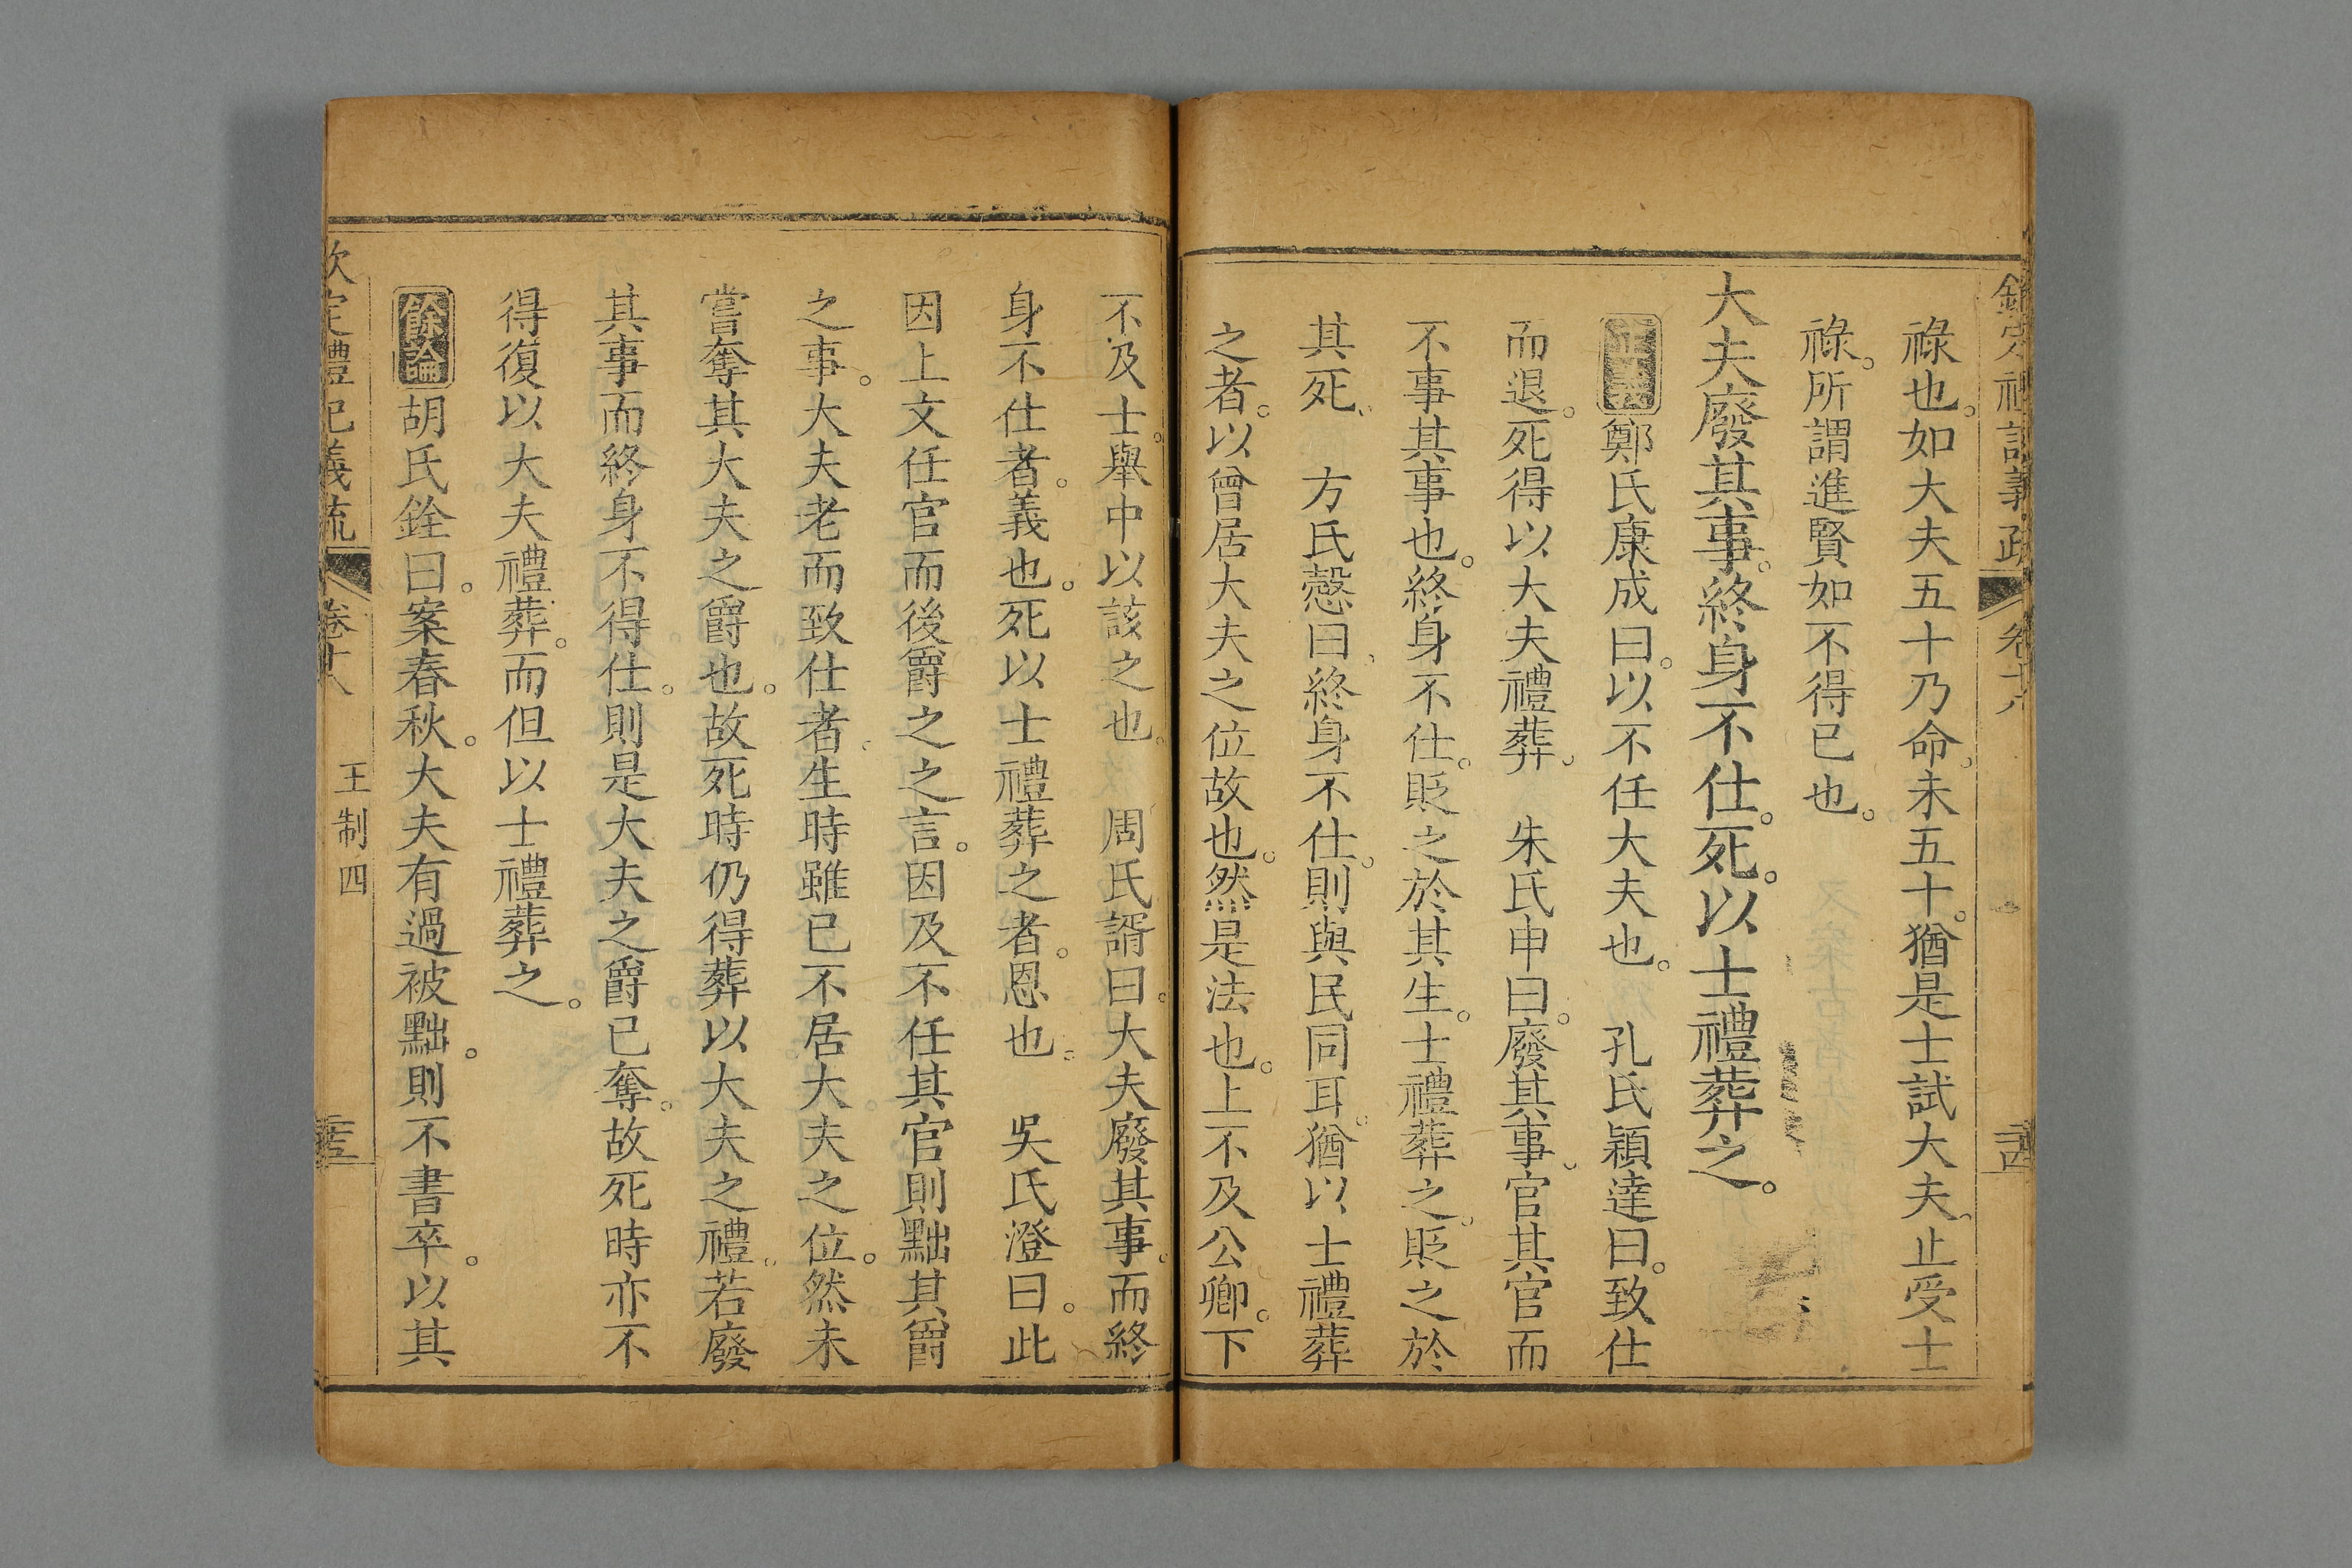 欽定禮記義疏 卷十八
祿也。如大夫五十乃命。未五十。猶是士試大夫。止受士
祿。所謂進賢如不得已也。
大夫廢其事。終身不仕。死。以士禮葬之。
正義 鄭氏康成曰。以不任大夫也。 孔氏穎達曰。致仕
而退。死得以大夫禮葬。 朱氏申曰。廢其事。官其官而
不事其事也。終身不仕。貶之於其生。士禮葬之。貶之於
其死。 方氏慤曰。終身不仕。則與民同耳。猶以士禮葬
之者。以曾居大夫之位故也。然是法也。上不及公卿。下
不及士。舉中以該之也。 周氏諝曰。大夫廢其事。而終
身不仕者。義也。死以士禮葬之者。恩也。 吳氏澄曰。此
因上文任官而後爵之之言。因及不任其官則黜其爵
之事。大夫老而致仕者。生時雖已不居大夫之位。然未
嘗奪其大夫之爵也。故死時仍得葬以大夫之禮。若廢
其事而終身不得仕。則是大夫之爵已奪。故死時亦不
得復以大夫禮葬。而但以士禮葬之。
餘論 胡氏銓曰。案春秋。大夫有過被黜。則不書卒。以其
欽定禮記義疏 卷十八 王制四